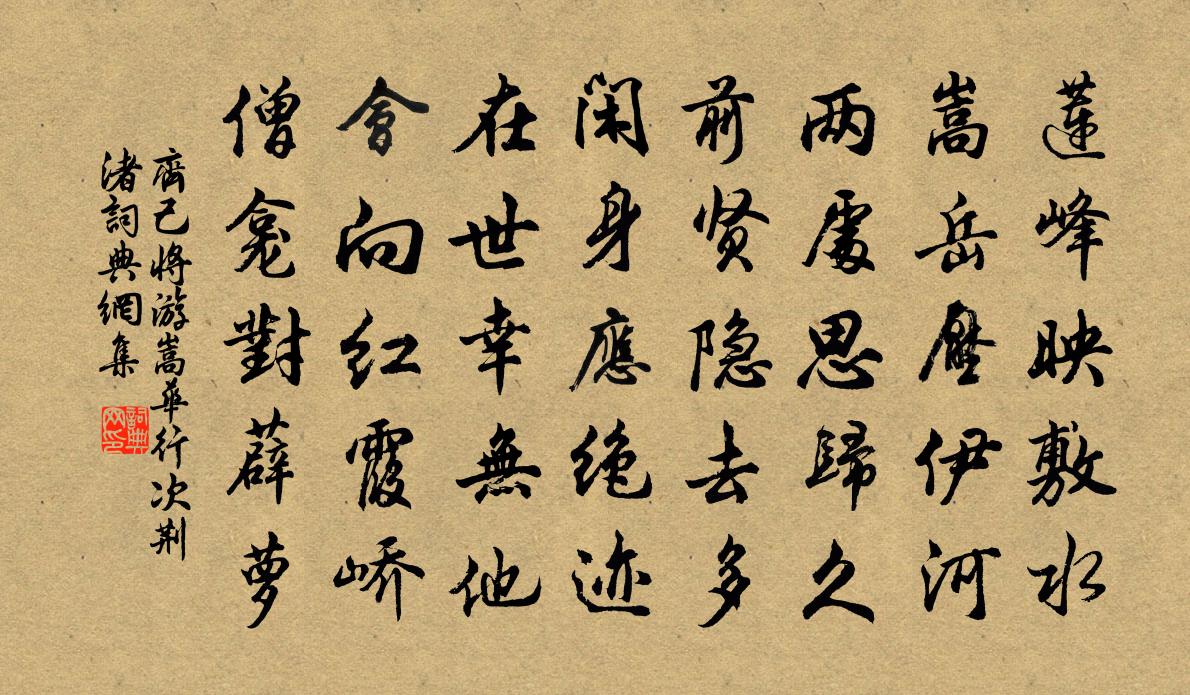 莲峰映敷水
嵩岳壓伊河
两處思歸久
前贤隐去多
闲身應绝迹
在世幸無他
會向红霞峤
僧龛對薜萝
齊己将游嵩華行次荆
渚詞典網集
詞典网印